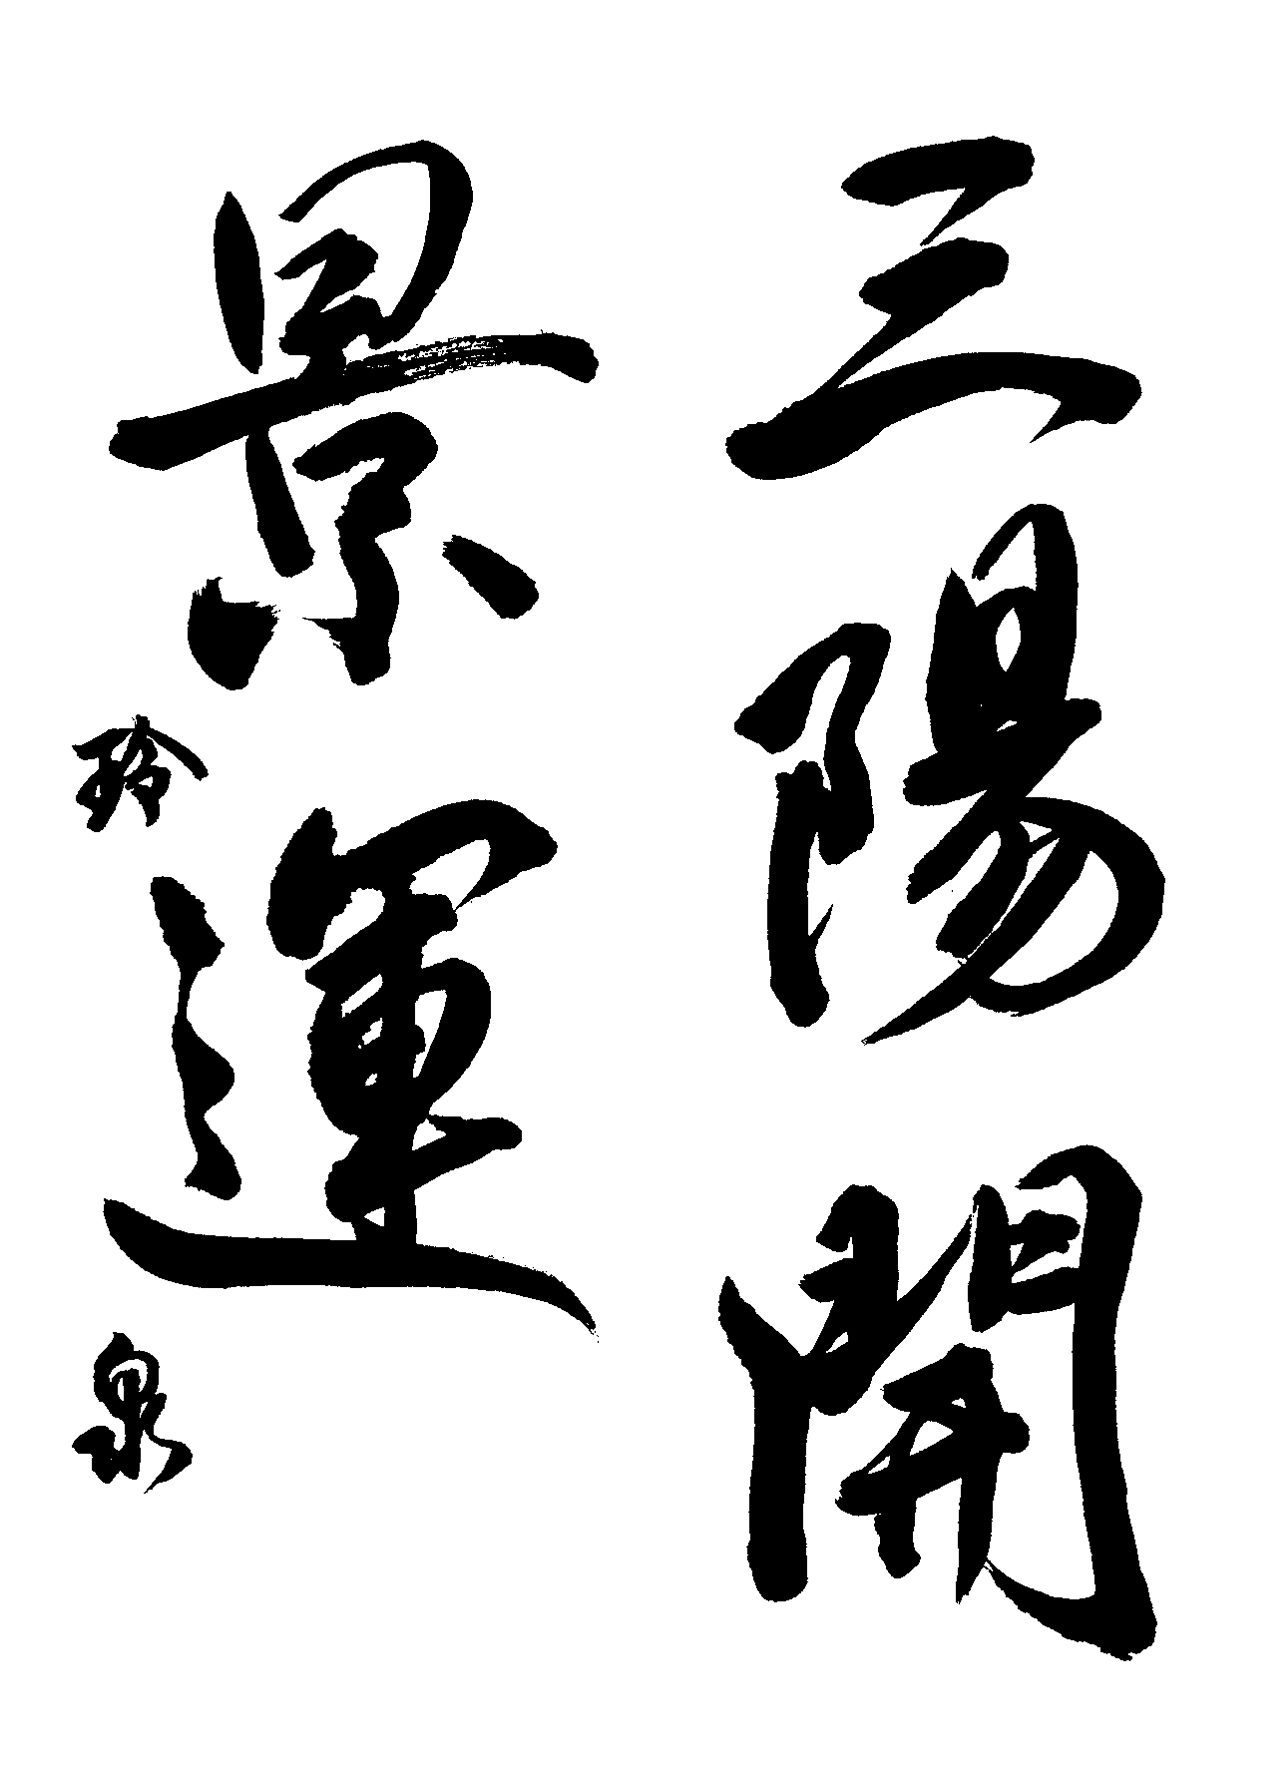 三陽開
景運
玲泉